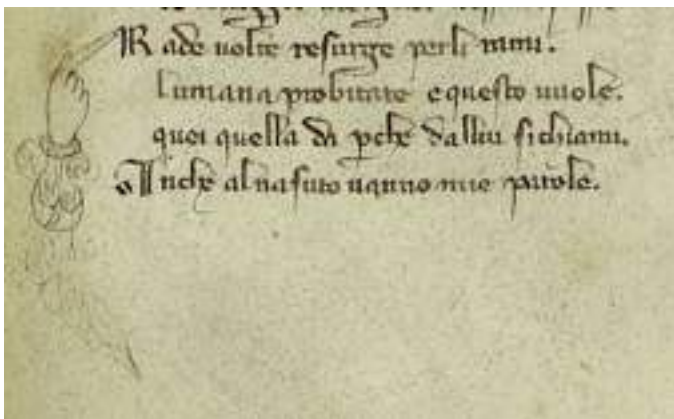 R ade uolte resurge perli rami.
lumana probitate e questo uuole.
quei quella da perche dallui sichiami.
Anche al nasuto uanno mie parole.